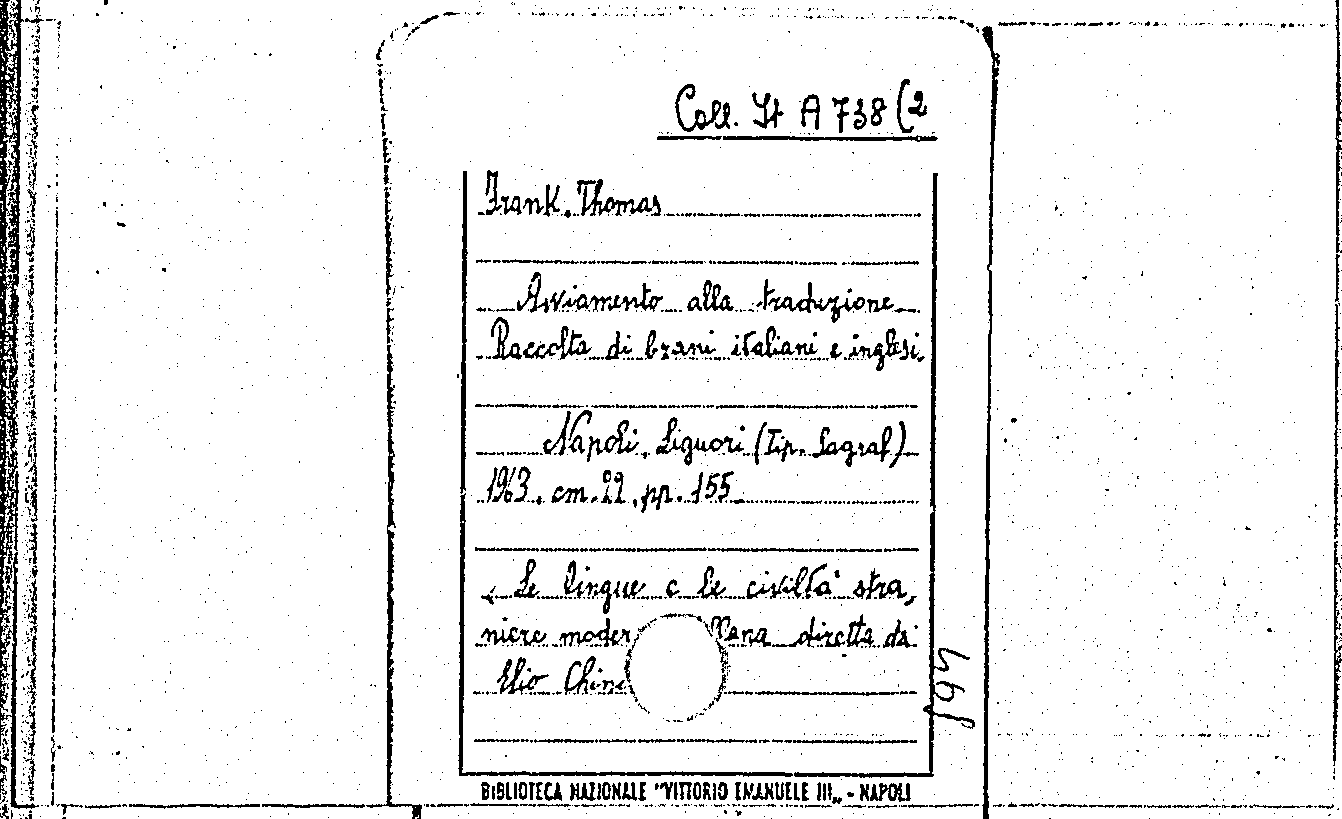 Coll. It A 738 (2
Frank, Thomas
Avviamento alla traduzione
Raccolta di brani italiani e inglesi.
Napoli, Liguori (Tip. Sagraf)
1963, cm. 22, pp. 155
Le lingue e le civiltà stra,
niere moder llana diretta da
Elio Chin
BIBLIOTECA NAZIONALE "VITTORIO EMANUELE III„ - NAPOLI